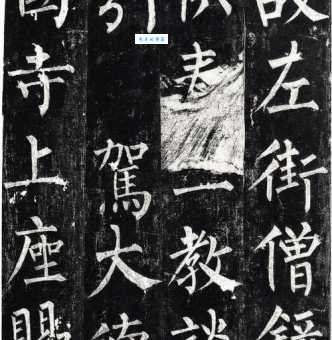 故左街僧錄
供奉三教談
引駕大德
國寺上座賜